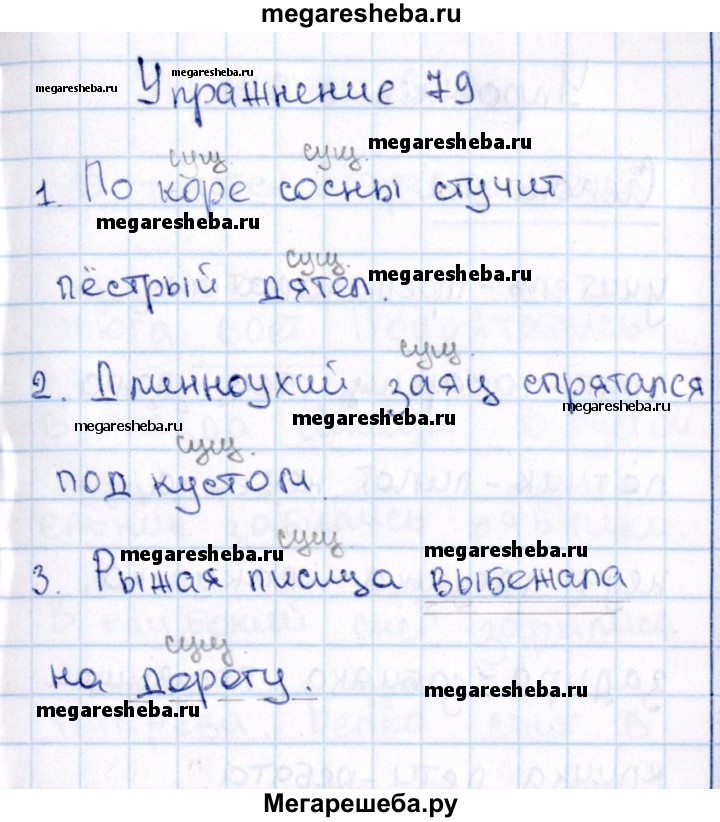 megaresheba.ru
megaresheba.ru
megaresheba.ru
Упражнение 79
megaresheba.ru
сущ. сущ.
1. По коре сосны стучит
megaresheba.ru
сущ.
megaresheba.ru
пёстрый дятел.
сущ.
2. Длинноухий заяц спрятался
megaresheba.ru
megaresheba.ru
megaresheba.ru
сущ.
под кустом.
сущ.
megaresheba.ru
megaresheba.ru
3. Рыжая лисица выбежала
сущ.
на дорогу.
megaresheba.ru
megaresheba.ru
Мегарешеба.ру